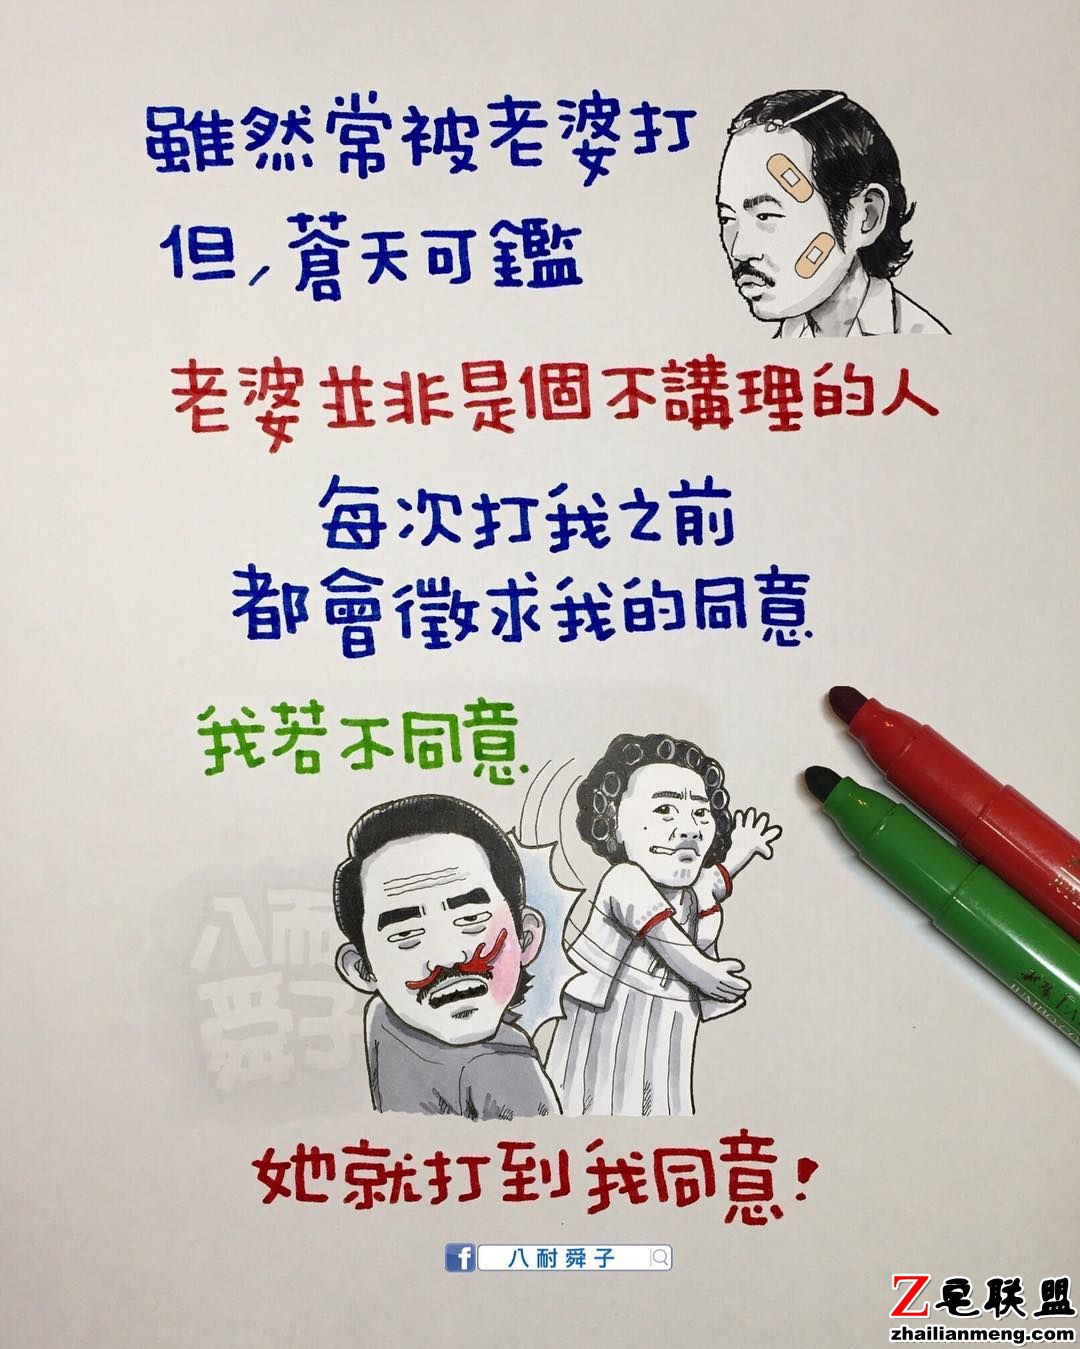 雖然常被老婆打
但，蒼天可鑑
老婆並非是個不講理的人
每次打我之前
都會徵求我的同意
我若不同意
八耐
舜子
她就打到我同意！
f 八耐舜子
Z皂联盟
zhailianmeng.com